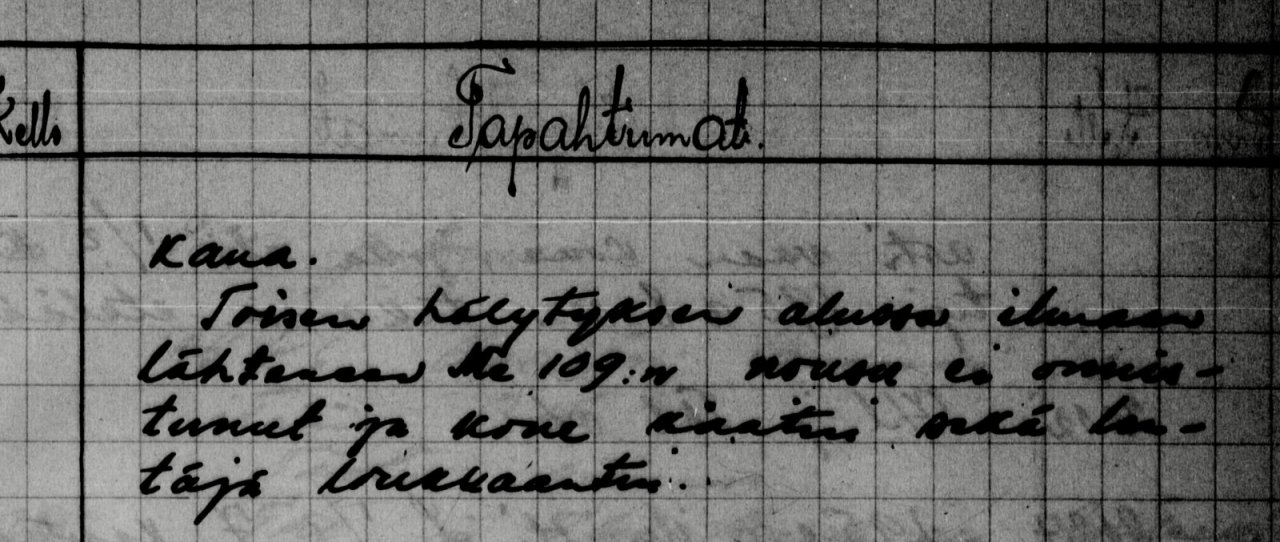 Kello Tapahtumat.
kana.
Toisen hälytyksen alussa ilmaan
lähteneen Me 109:n nousu ei onnis-
tunut ja kone kaatui sekä len-
täjä loukkaantui.